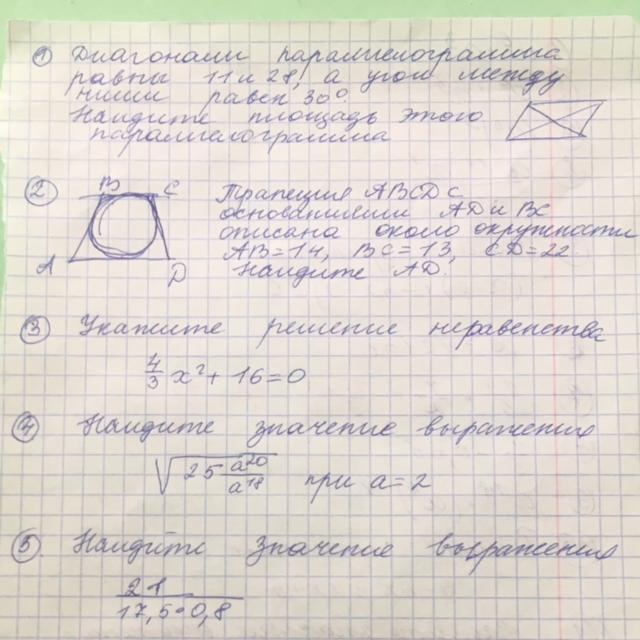 1 Диагонали параллелограмма
равны 11 и 28, а угол между
ними равен 30°.
Найдите площадь этого
параллелограмма
2 B C A D
Трапеция ABCD с
основаниями AD и BC
описана около окружности
AB=14, BC=13, CD=22
Найдите AD.
3 Укажите решение неравенства
4/3 x² + 16 = 0
4 Найдите значение выражения
√(25 a²⁰/a¹⁸) при a=2
5 Найдите значение выражения
21/(17,5·0,8)